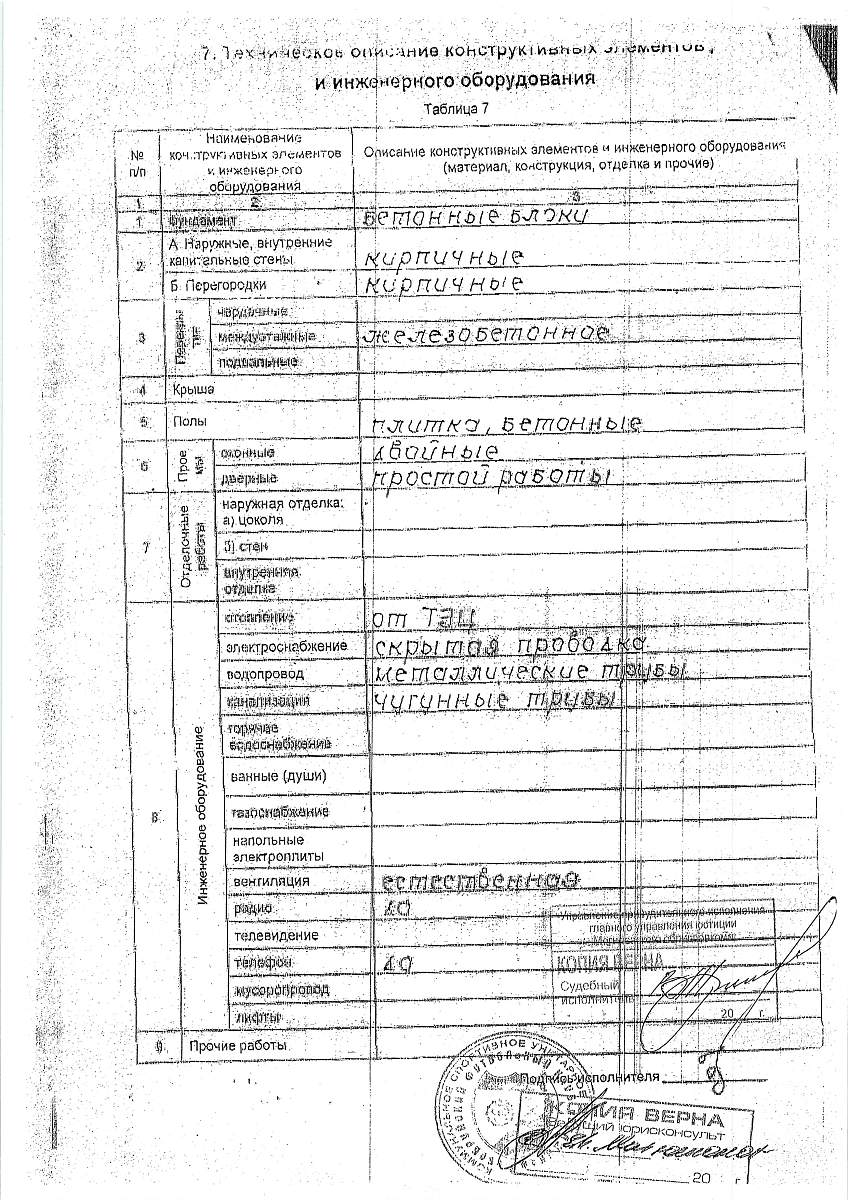 7. Техническое описание конструктивных элементов
и инженерного оборудования
Таблица 7
№ п/п
Наименование конструктивных элементов и инженерного оборудования
Описание конструктивных элементов и инженерного оборудования (материал, конструкция, отделка и прочие)
1 2 3
1 Фундамент бетонные блоки
2 А. Наружные, внутренние капитальные стены кирпичные
Б. Перегородки кирпичные
3 Перекрытие чердачные
междуэтажные железобетонное
подвальные
4 Крыша
5 Полы плитка, бетонные
6 Проемы оконные двойные
дверные простой работы
7 Отделочные работы наружная отделка:
а) цоколя
б) стен
внутренняя отделка
8 Инженерное оборудование отопление от ТЭЦ
электроснабжение скрытая проводка
водопровод металлические трубы
канализация чугунные трубы
горячее водоснабжение
ванные (души)
газоснабжение
напольные электроплиты
вентиляция естественная
радио до
телевидение
телефон до
мусоропровод
лифты
9 Прочие работы
Управление принудительного исполнения
главного управления юстиции
КОПИЯ ВЕРНА
Судебный
исполнитель
20 г.
Подпись исполнителя
КОММУНАЛЬНОЕ СПОРТИВНОЕ УНИТАРНОЕ
КОПИЯ ВЕРНА
Ведущий юрисконсульт
20 г.